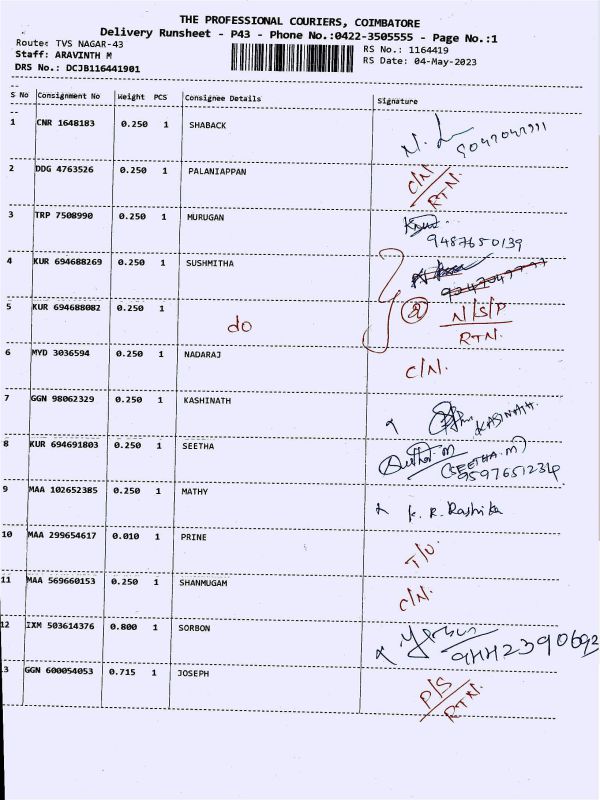 THE PROFESSIONAL COURIERS, COIMBATORE
Delivery Runsheet - P43 - Phone No.:0422-3505555 - Page No.:1
Route: TVS NAGAR-43
RS No.: 1164419
Staff: ARAVINTH M
RS Date: 04-May-2023
DRS No.: DCJB116441901
S No Consignment No Weight PCS Consignee Details Signature
1 CNR 1648183 0.250 1 SHABACK
2 DDG 4763526 0.250 1 PALANIAPPAN C/N/
RTN.
3 TRP 7508990 0.250 1 MURUGAN
9487650139
4 KUR 694688269 0.250 1 SUSHMITHA
5 KUR 694688082 0.250 1 do 2 N/S/P
RTN.
6 MYD 3036594 0.250 1 NADARAJ C/N.
7 GGN 98062329 0.250 1 KASHINATH KASINATH.
8 KUR 694691803 0.250 1 SEETHA
(SEETHA.M)
9597651234
9 MAA 102652385 0.250 1 MATHY R. Rashika
10 MAA 299654617 0.010 1 PRINE T/U
11 MAA 569660153 0.250 1 SHANMUGAM C/N.
12 IXM 503614376 0.800 1 SORBON
9442390692
3 GGN 600054053 0.715 1 JOSEPH P/S
RTN.